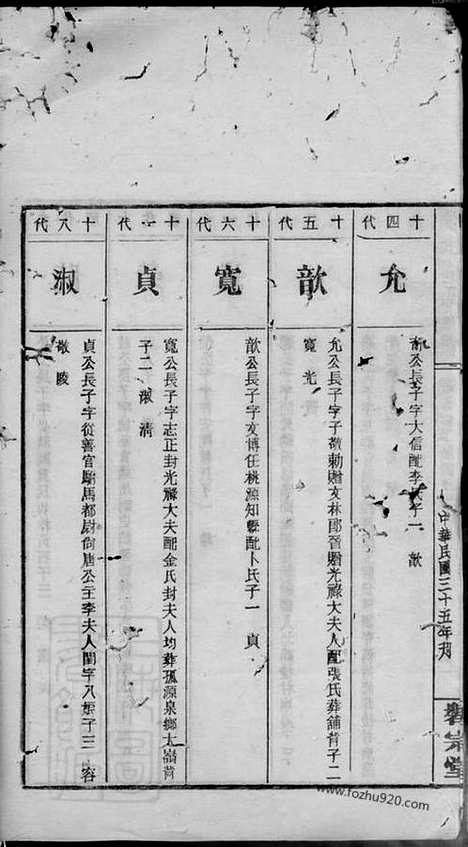 十四代
允
公長子字大信配李氏子一 歆
十五代
歆
允公長子字子敬勅贈文林郎晉贈光祿大夫人配張氏葬舖背子二
寬 光
十六代
寬
歆公長子字文博任桃源知縣配卜氏子一 貞
十一代
貞
寬公長子字志正封光祿大夫配金氏封夫人均葬孤源泉鄉大嶺背
子二 淑 清
十八代
淑
貞公長子字從善官駙馬都尉尚唐公主李夫人閨字八娘子三 容
敬 陵
中華民國三十五年 月
宗堂
www.fozhu920.com